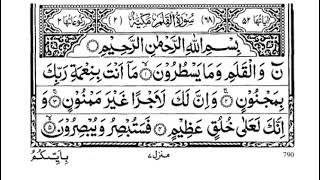 اٰيَاتُهَا ٥٢ (٦٨) سُوْرَةُ الْقَلَمِ مَكِّيَّةٌ (٢) رُكُوْعَاتُهَا ٢
بِسْمِ اللّٰهِ الرَّحْمٰنِ الرَّحِيْمِ
نٓ وَالْقَلَمِ وَمَا يَسْطُرُوْنَ ۙ﴿١﴾ مَاۤ اَنْتَ بِنِعْمَةِ رَبِّكَ
بِمَجْنُوْنٍ ۚ﴿٢﴾ وَاِنَّ لَكَ لَاَجْرًا غَيْرَ مَمْنُوْنٍ ۚ﴿٣﴾ وَ
اِنَّكَ لَعَلٰى خُلُقٍ عَظِيْمٍ ﴿٤﴾ فَسَتُبْصِرُ وَيُبْصِرُوْنَ ۙ﴿٥﴾
بِاَيِّٮكُمُ منزل ٧ 790